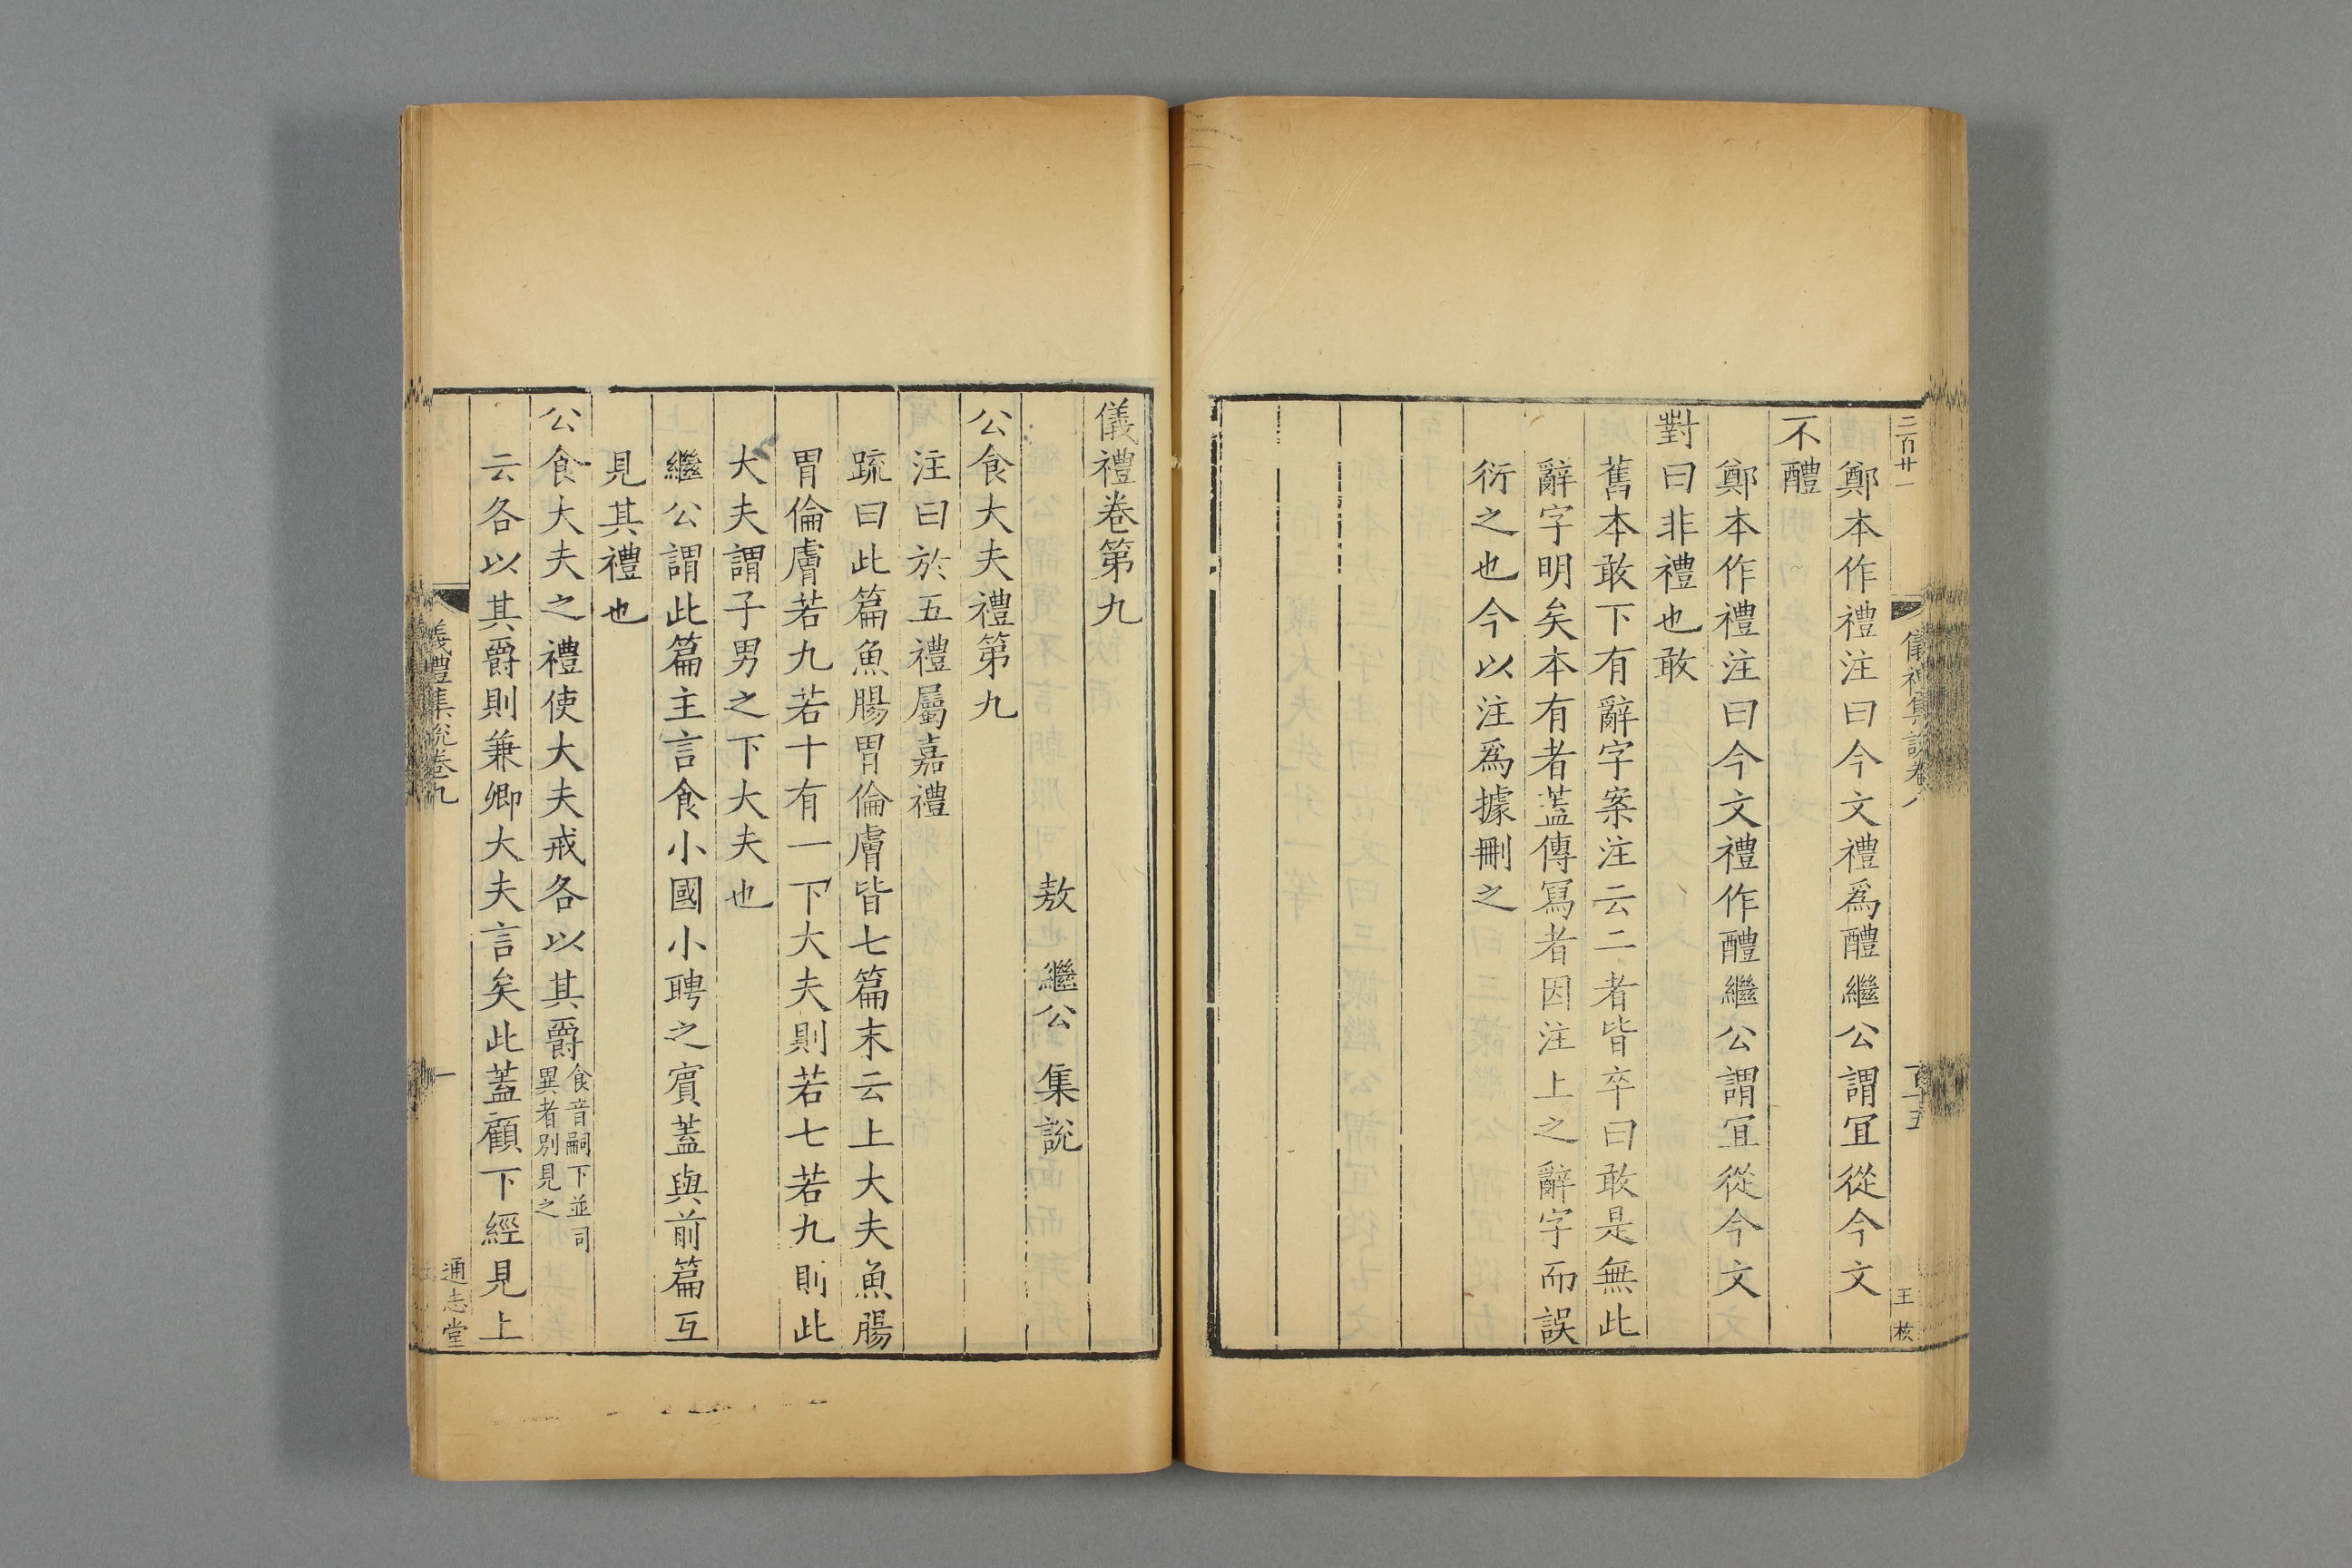 三百廿一
儀禮集説卷八
百十五
王核
鄭本作禮注曰今文禮爲醴繼公謂冝從今文
不醴
鄭本作禮注曰今文禮作醴繼公謂冝從今文
對曰非禮也敢
舊本敢下有辭字案注云二者皆卒曰敢是無此
辭字明矣本有者蓋傳冩者因注上之辭字而誤
衍之也今以注爲據刪之
儀禮卷第九
敖繼公集說
公食大夫禮第九
注曰於五禮屬嘉禮
疏曰此篇魚腸胃倫膚皆七篇末云上大夫魚腸
胃倫膚若九若十有一下大夫則若七若九則此
大夫謂子男之下大夫也
繼公謂此篇主言食小國小聘之賔蓋與前篇互
見其禮也
公食大夫之禮使大夫戒各以其爵食音嗣下並司異者別見之
云各以其爵則兼卿大夫言矣此蓋顧下經見上
儀禮集說卷九
一
通志堂